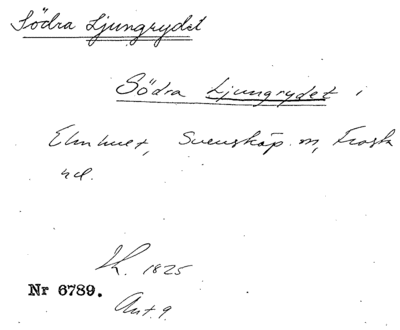 Södra Ljungrydet
Södra Ljungrydet i
Elmhult, Svensköp m, Frosta
hd.
Lk. 1825
Nr 6789.
Ant. 9.